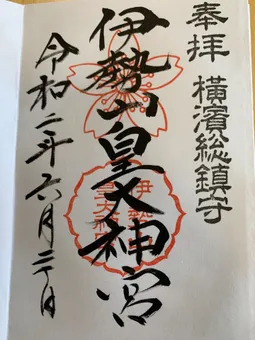 奉拝 横濱総鎮守
伊勢山皇大神宮
令和二年六月二十日
伊勢山
皇大神宮